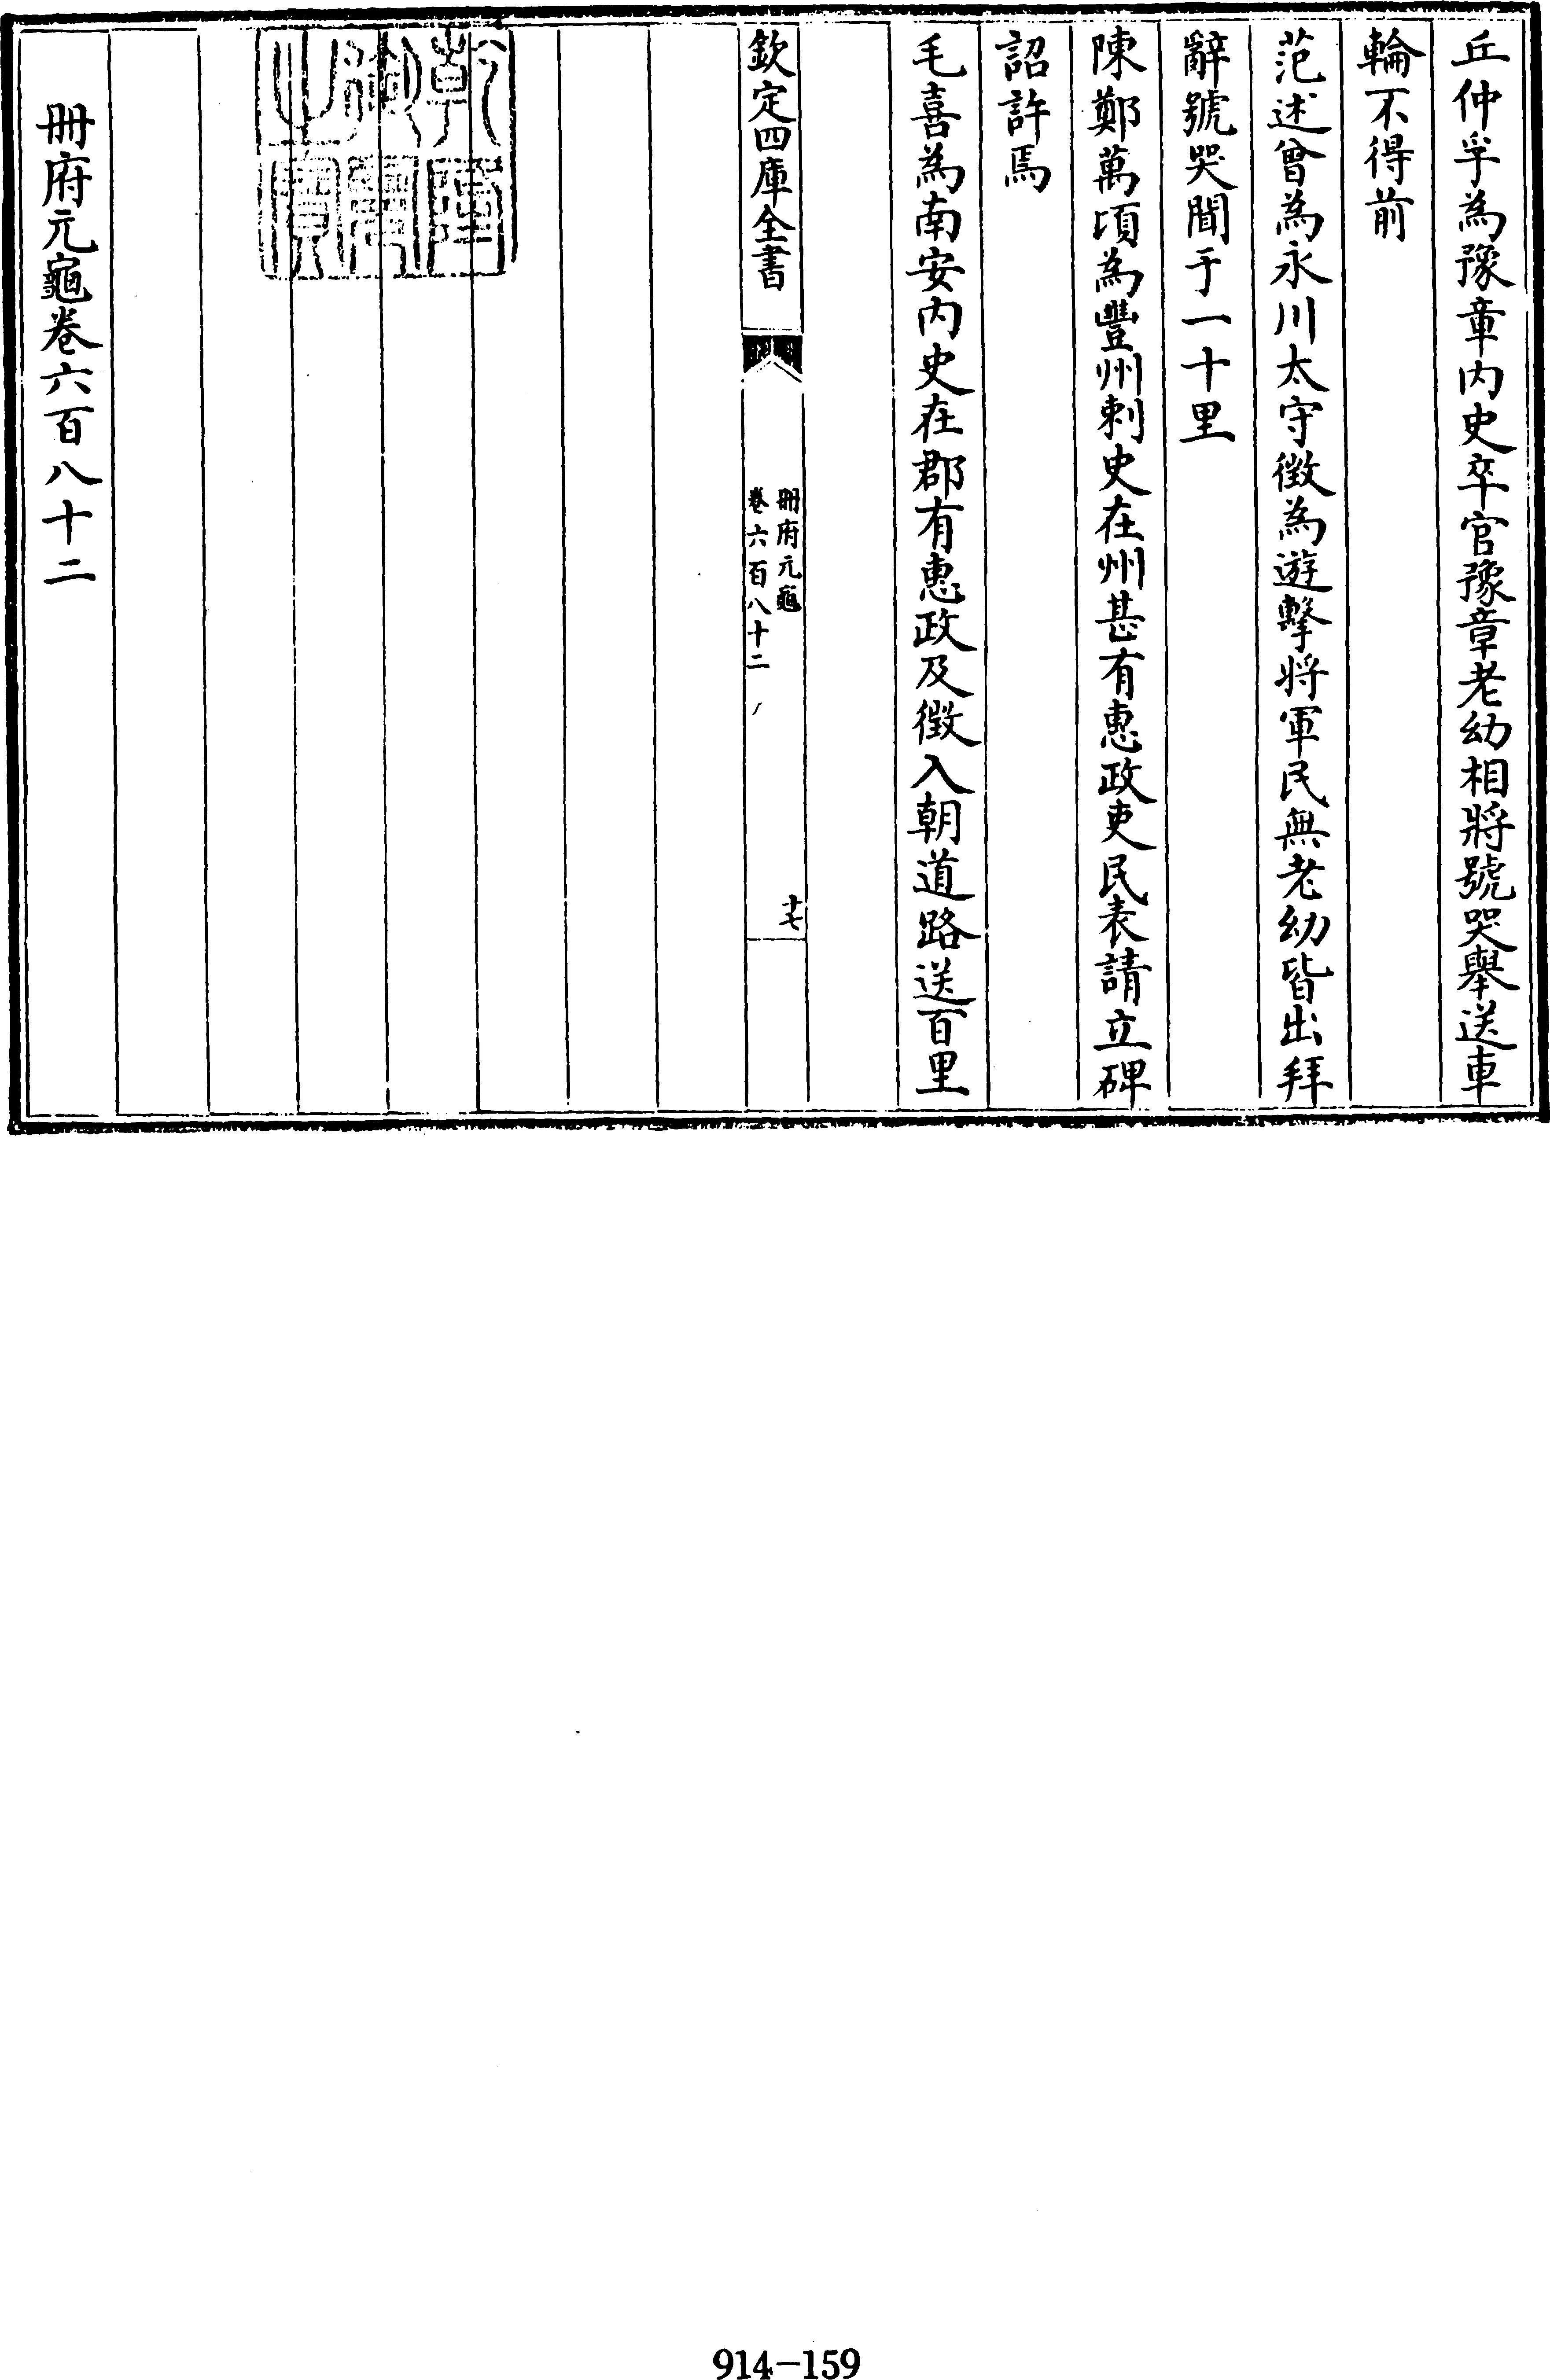 丘仲孚為豫章内史卒官豫章老幼相將號哭舉送車
輪不得前
范述曾為永川太守徴為遊擊將軍民無老幼皆出拜
辭號哭聞于一十里
陳鄭萬頃為豐州刺史在州甚有惠政吏民表請立碑
詔許焉
毛喜為南安内史在郡有惠政及徴入朝道路送百里
欽定四庫全書
冊府元龜
卷六百八十二
十七
乾隆御覽之寶
冊府元龜卷六百八十二
914-159